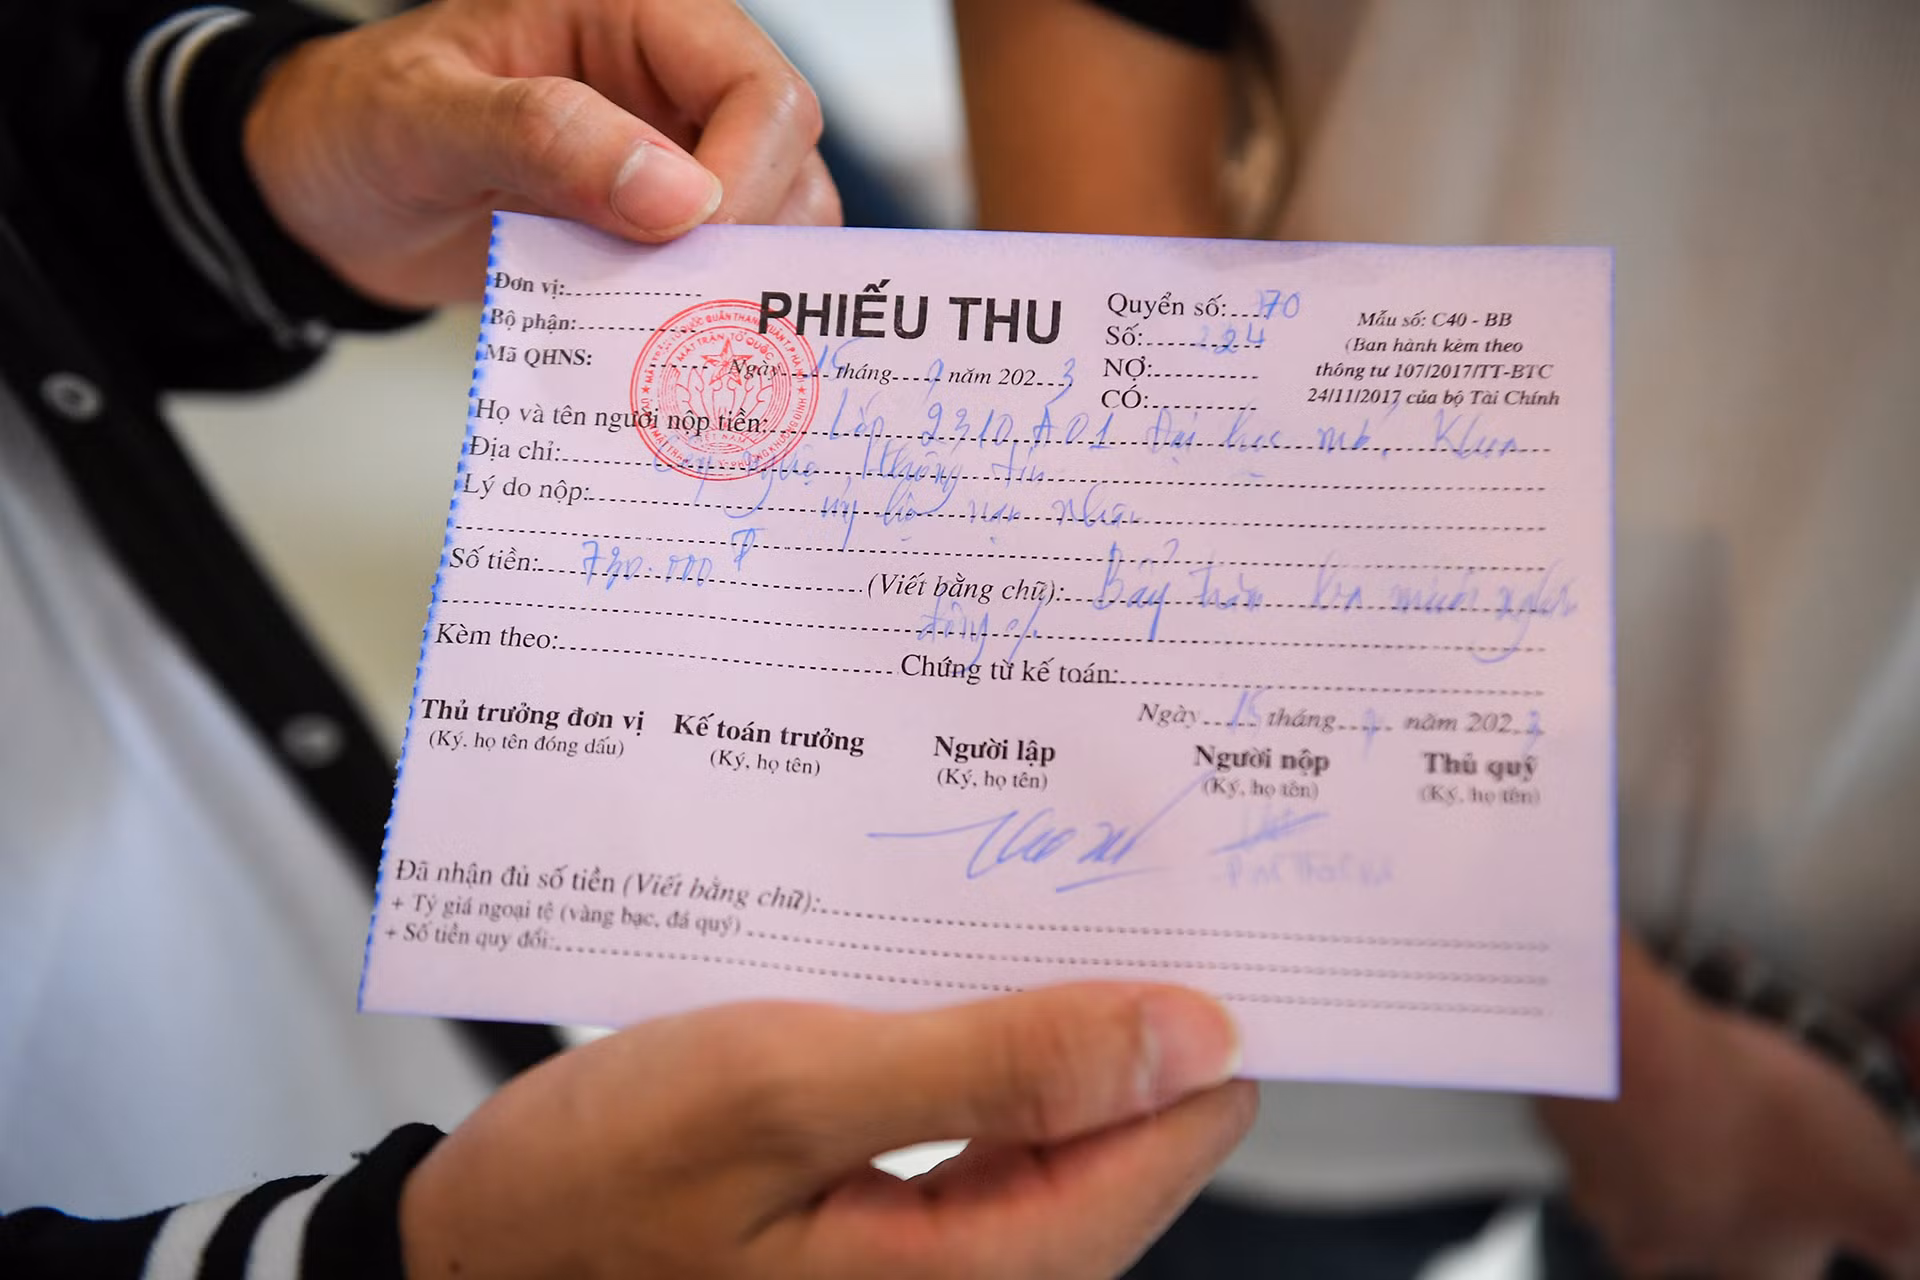 Đơn vị:
PHIẾU THU
Quyển số: 70
Mẫu số: C40 - BB
Bộ phận:
Số: 224
(Ban hành kèm theo
Mã QHNS:
Ngày 15 tháng 9 năm 2023
NỢ:
thông tư 107/2017/TT-BTC
CÓ:
24/11/2017 của bộ Tài Chính
Họ và tên người nộp tiền: Lớp 2310A01 Đại học mở, Khoa
Địa chỉ: thông tin
Lý do nộp: ủng hộ nạn nhân
Số tiền: 730.000đ (Viết bằng chữ): Bảy trăm ba mươi nghìn
đồng
Kèm theo: Chứng từ kế toán:
Ngày 15 tháng năm 2023
Thủ trưởng đơn vị Kế toán trưởng Người lập Người nộp Thủ quỹ
(Ký, họ tên đóng dấu) (Ký, họ tên) (Ký, họ tên) (Ký, họ tên) (Ký, họ tên)
Đã nhận đủ số tiền (Viết bằng chữ):
+ Tỷ giá ngoại tệ (vàng bạc, đá quý)
+ Số tiền quy đổi: